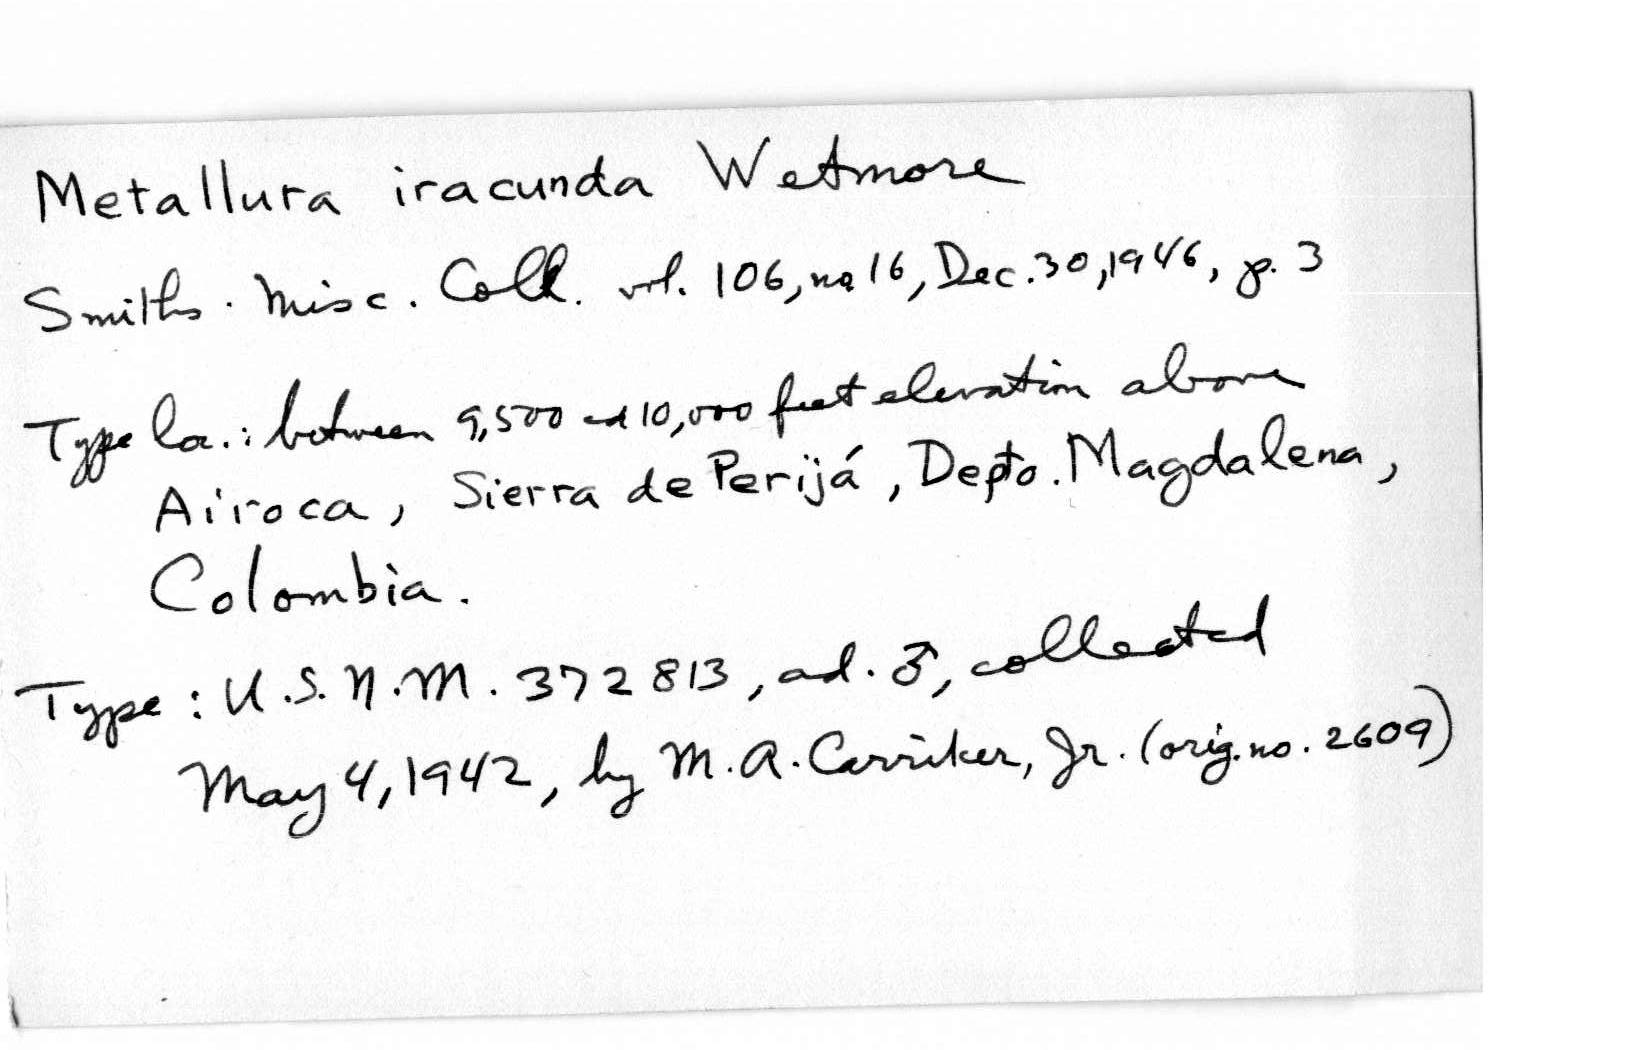 Metallura iracunda Wetmore
Smiths. Misc. Coll. vol. 106, no 16, Dec. 30, 1946, p. 3
Type loc.: between 9,500 and 10,000 feet elevation above
Airoca, Sierra de Perijá, Depto. Magdalena,
Colombia.
Type: U.S.N.M. 372813, ad. ♂, collected
May 4, 1942, by M. A. Carriker, Jr. (orig. no. 2609)